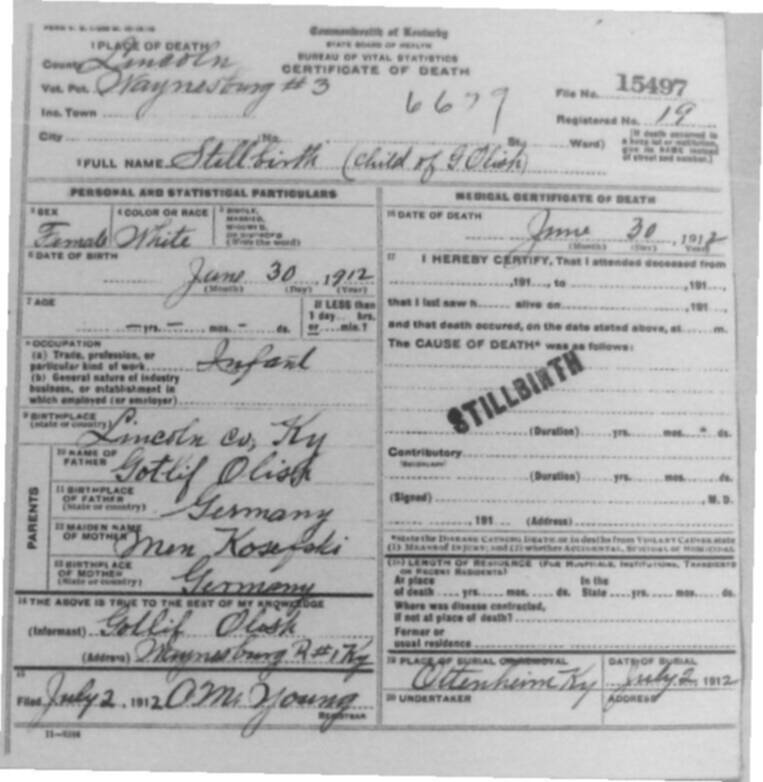 Commonwealth of Kentucky
STATE BOARD OF HEALTH
BUREAU OF VITAL STATISTICS
CERTIFICATE OF DEATH
1 PLACE OF DEATH
County Lincoln
Vot. Pct. Waynesburg #3
Inc. Town
City No. St. Ward)
6679
File No. 15497
Registered No. 19
[If death occurred in a hosp ital or institution, give its NAME instead of street and number.]
2 FULL NAME Stillbirth (child of G Olish)
PERSONAL AND STATISTICAL PARTICULARS
3 SEX 4 COLOR OR RACE 5 SINGLE, MARRIED, WIDOWED, OR DIVORCED (Write the word)
Female White
6 DATE OF BIRTH
June 30, 1912
(Month) (Day) (Year)
7 AGE If LESS than
1 day hrs.
- yrs. - mos. - ds. or min.?
8 OCCUPATION
(a) Trade, profession, or
particular kind of work Infant
(b) General nature of industry
business, or establishment in
which employed (or employer)
9 BIRTHPLACE
(State or country) Lincoln co, Ky
PARENTS
10 NAME OF
FATHER Gotlif Olish
11 BIRTHPLACE
OF FATHER
(State or country) Germany
12 MAIDEN NAME
OF MOTHER Kosefski
13 BIRTHPLACE
OF MOTHER
(State or country) Germany
14 THE ABOVE IS TRUE TO THE BEST OF MY KNOWLEDGE
(Informant) Gotlif Olish
(Address) Waynesburg R#1 Ky
15
Filed July 2, 1912 Young
REGISTRAR
MEDICAL CERTIFICATE OF DEATH
16 DATE OF DEATH June 30, 1912
(Month) (Day) (Year)
17 I HEREBY CERTIFY, That I attended deceased from
191 , to 191
that I last saw h alive on 191
and that death occured, on the date stated above, at m.
The CAUSE OF DEATH* was as follows:
STILLBIRTH
(Duration) yrs. mos. ds.
Contributory
(Duration) yrs. mos. ds.
(Signed) M. D.
191 (Address)
*State the DISEASE CAUSING DEATH, or in deaths from VIOLENT CAUSES, state
(1) MEANS OF INJURY; and (2) whether ACCIDENTAL, SUICIDAL OR HOMICIDAL
LENGTH OF RESIDENCE (FOR HOSPITALS, INSTITUTIONS, TRANSIENTS
OR RECENT RESIDENTS)
At place In the
of death yrs. mos. ds. State yrs. mos. ds.
Where was disease contracted,
if not at place of death?
Former or
usual residence
19 PLACE OF BURIAL OR REMOVAL DATE OF BURIAL
Ottenheim Ky July 2 1912
20 UNDERTAKER ADDRESS